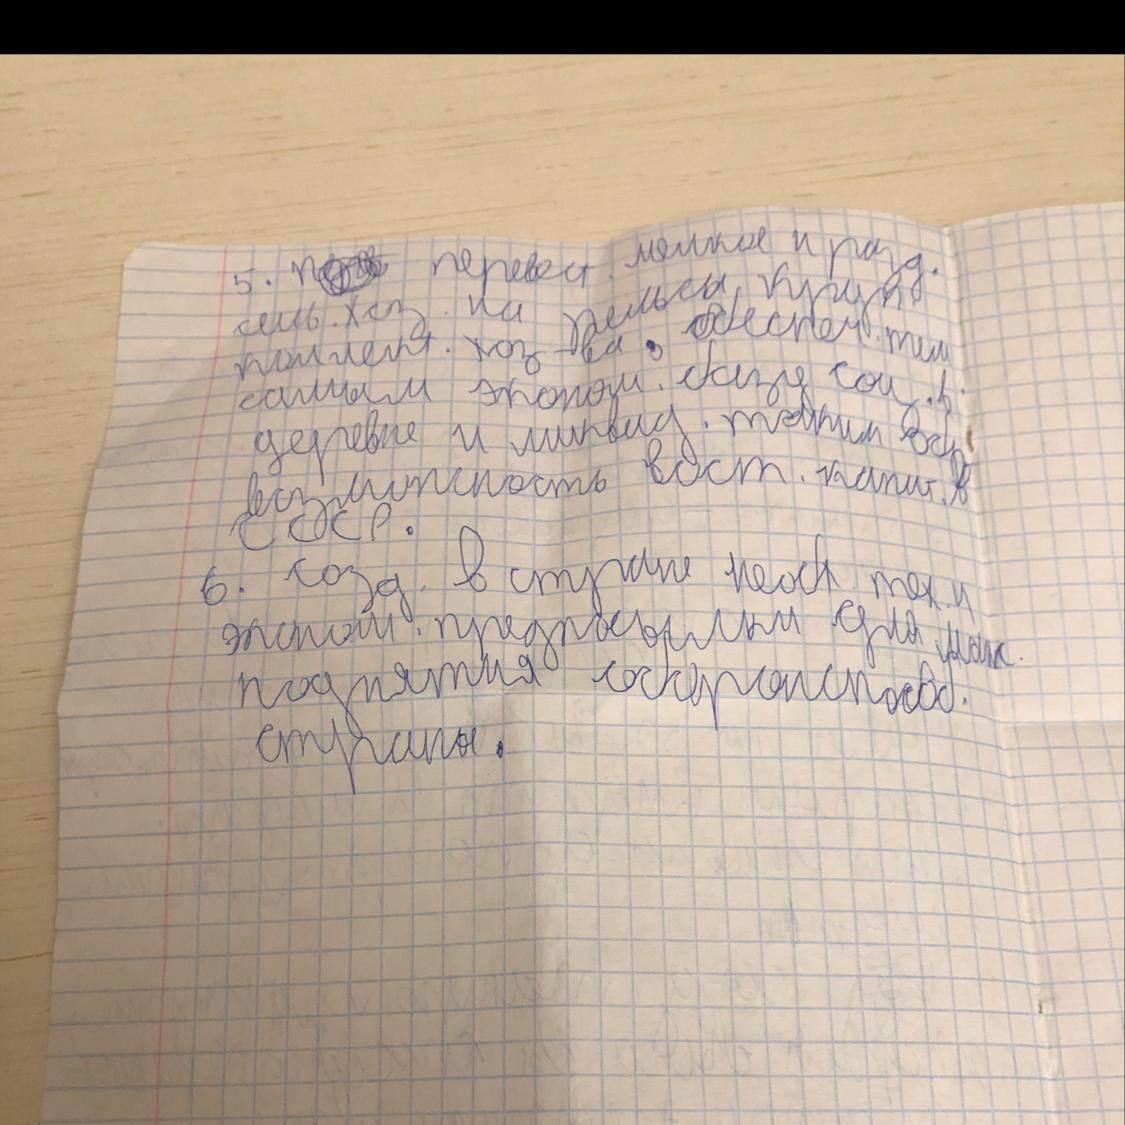 5. перевест. мелкое и разд.
сель. хоз. на рельсы крупн
коллект. хоз-ва, обеспеч. тем
самым эконом. базу соц. в
деревне и ликвид. таким обр
возможность вост. капит. в
СССР.
6. созд. в стране необх. тех. и
эконом. предпосылки для мак.
поднятия обороноспособ.
страны.